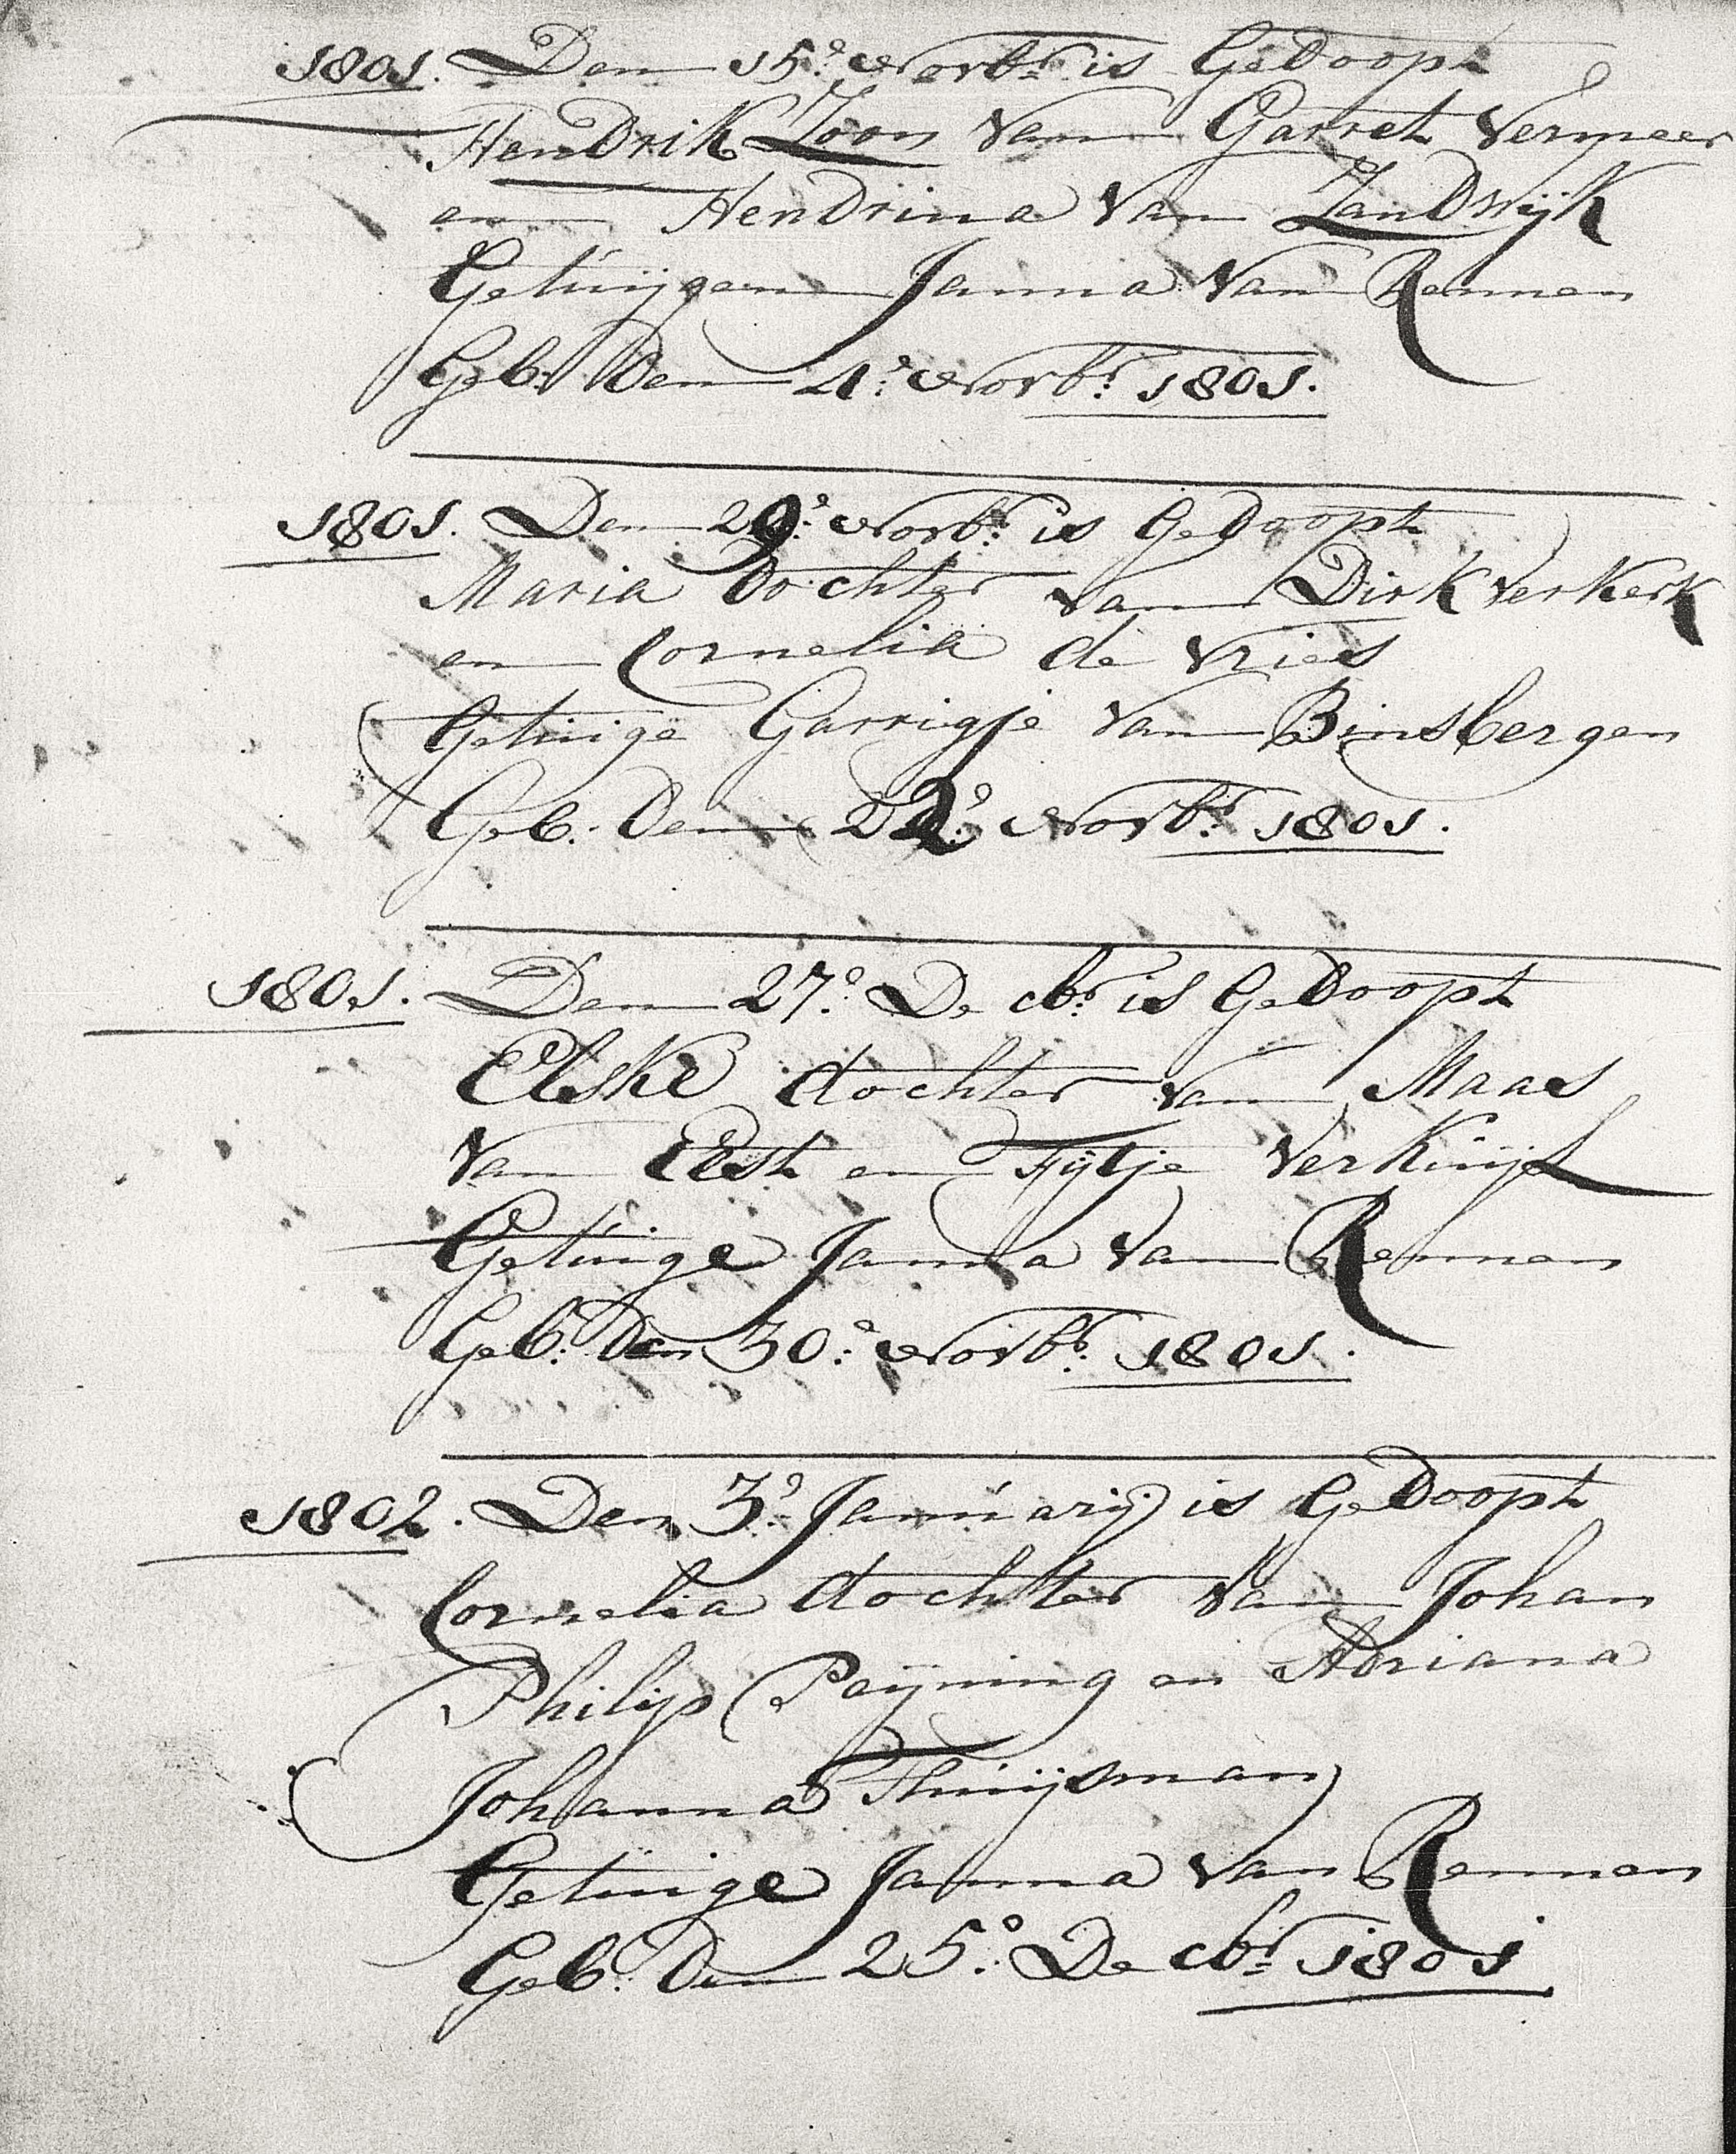 1801. Den 15e Novbr is GeDoopt
HenDrik Zoon van Garret Vermeer
en HenDrina van ZanDwijk
Getuijgen Janna van Rennen
Geb. Den 4e Novbr 1801.
1801. Den 29e Novbr is GeDoopt
Maria Dochter van Dirk Verkerk
en Cornelia de Vries
Getuige Garrigje van Binsbergen
Geb. Den 22e Novbr 1801.
1801. Den 27e Decbr is GeDoopt
Elske dochter van Maas
van Est en Fijtje Verkuijl
Getuige Janna van Rennen
Geb. Den 30e Novbr 1801.
1802. Den 3e Januarij is GeDoopt
Cornelia dochter van Johan
Philip Peijning en Adriana
Johanna Thuijsman
Getuige Janna van Rennen
Geb. Den 25e Decbr 1801